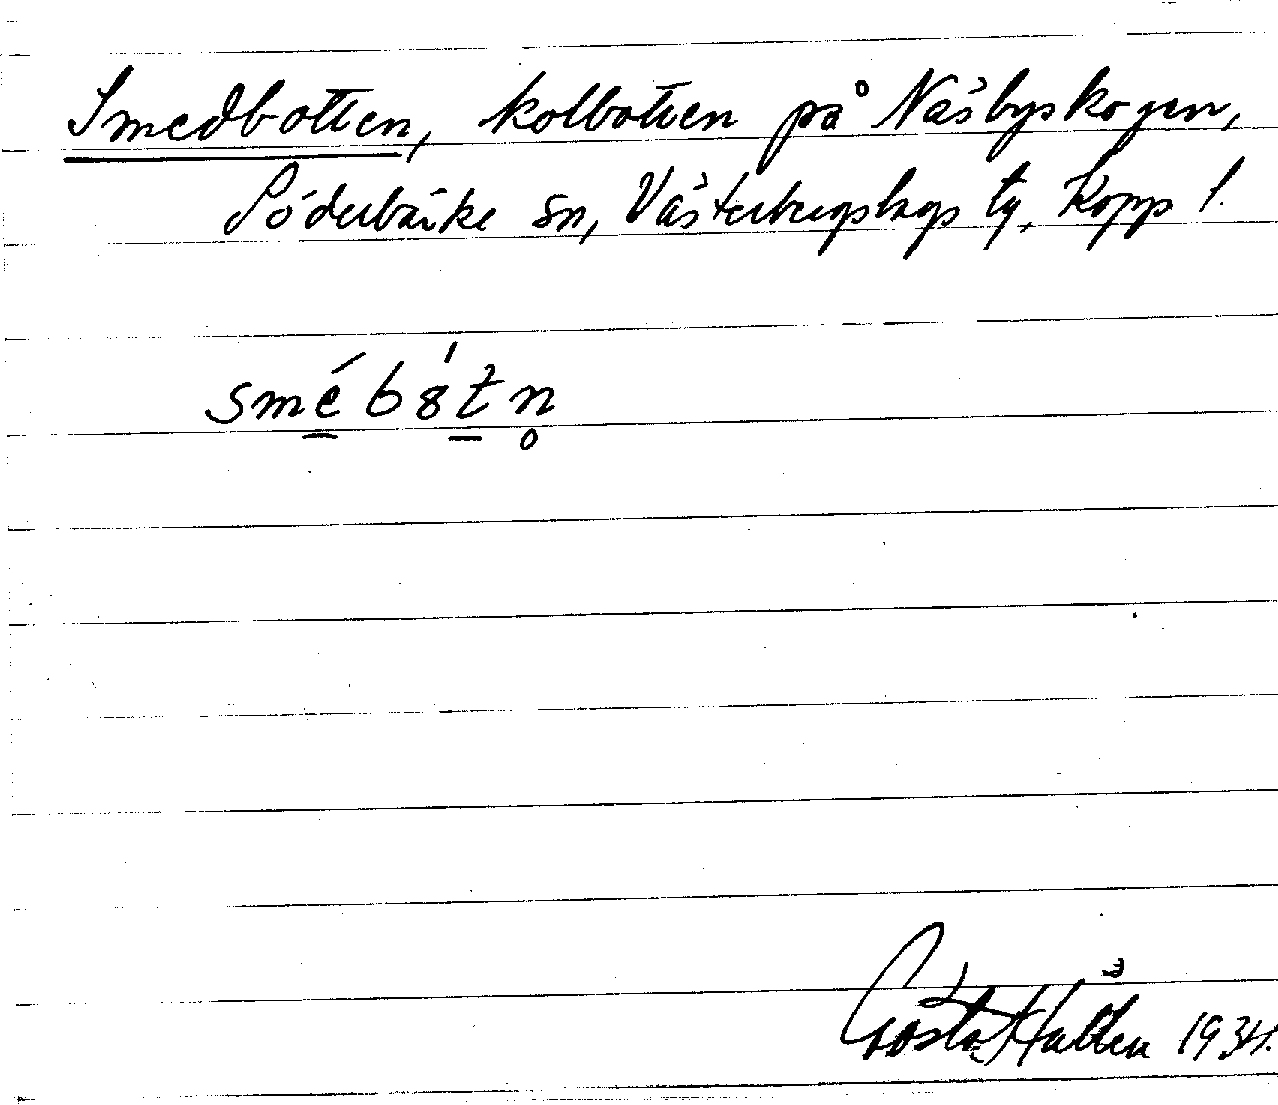 Smedbotten, kolbotten på Näsbyskogen,
Söderbärke sn, Västerbergslags tg. Kopp l.
sméb 8́tn̥
Gösta Hallén 1934.